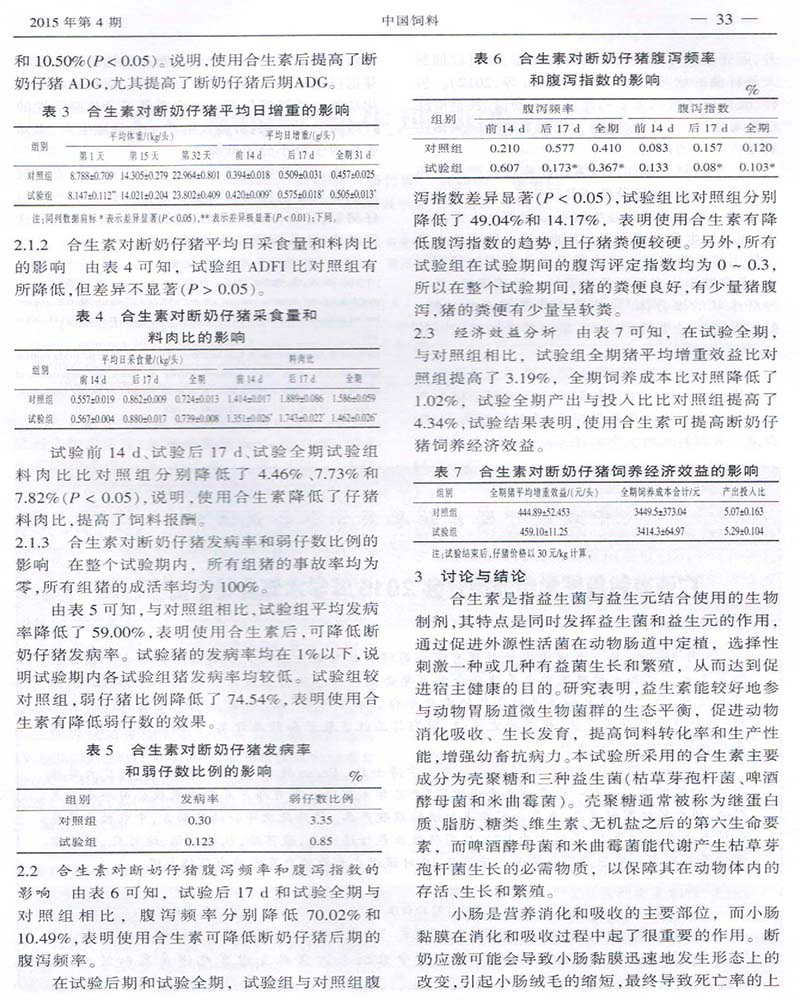 2015 年第 4 期
中国饲料
— 33 —
和 10.50%(P < 0.05)。说明,使用合生素后提高了断
奶仔猪 ADG,尤其提高了断奶仔猪后期ADG。
表 3 合生素对断奶仔猪平均日增重的影响
组别 平均体重/(kg/头) 平均日增重/(g/头)
第 1 天 第 15 天 第 32 天 前 14 d 后 17 d 全期 31 d
对照组 8.788±0.709 14.305±0.279 22.964±0.801 0.394±0.018 0.509±0.031 0.457±0.025
试验组 8.147±0.112** 14.021±0.204 23.802±0.409 0.420±0.009* 0.575±0.018* 0.505±0.013*
注:同列数据肩标 * 表示差异显著(P < 0.05),** 表示差异极显著(P < 0.01);下同。
2.1.2 合生素对断奶仔猪平均日采食量和料肉比
的影响 由表 4 可知，试验组 ADFI 比对照组有
所降低,但差异不显著(P > 0.05)。
表 4 合生素对断奶仔猪采食量和
料肉比的影响
组别 平均日采食量/(kg/头) 料肉比
前 14 d 后 17 d 全期 前 14 d 后 17 d 全期
对照组 0.557±0.019 0.862±0.009 0.724±0.013 1.414±0.017 1.889±0.086 1.586±0.059
试验组 0.567±0.004 0.880±0.017 0.739±0.008 1.351±0.026* 1.743±0.022* 1.462±0.026*
试验前 14 d、试验后 17 d、试验全期试验组
料肉比比对照组分别降低了 4.46%、7.73%和
7.82%(P < 0.05),说明,使用合生素降低了仔猪
料肉比,提高了饲料报酬。
2.1.3 合生素对断奶仔猪发病率和弱仔数比例的
影响 在整个试验期内，所有组猪的事故率均为
零,所有组猪的成活率均为 100%。
由表 5 可知,与对照组相比,试验组平均发病
率降低了 59.00%,表明使用合生素后,可降低断
奶仔猪发病率。试验猪的发病率均在 1%以下,说
明试验期内各试验组猪发病率均较低。试验组较
对照组,弱仔猪比例降低了 74.54%,表明使用合
生素有降低弱仔数的效果。
表 5 合生素对断奶仔猪发病率
和弱仔数比例的影响 %
组别 发病率 弱仔数比例
对照组 0.30 3.35
试验组 0.123 0.85
2.2 合生素对断奶仔猪腹泻频率和腹泻指数的
影响 由表 6 可知，试验后 17 d 和试验全期与
对照组相比，腹泻频率分别降低 70.02%和
10.49%,表明使用合生素可降低断奶仔猪后期的
腹泻频率。
在试验后期和试验全期，试验组与对照组腹
表 6 合生素对断奶仔猪腹泻频率
和腹泻指数的影响 %
组别 腹泻频率 腹泻指数
前 14 d 后 17 d 全期 前 14 d 后 17 d 全期
对照组 0.210 0.577 0.410 0.083 0.157 0.120
试验组 0.607 0.173* 0.367* 0.133 0.08* 0.103*
泻指数差异显著(P < 0.05),试验组比对照组分别
降低了 49.04%和 14.17%，表明使用合生素有降
低腹泻指数的趋势,且仔猪粪便较硬。另外,所有
试验组在试验期间的腹泻评定指数均为 0 ~ 0.3,
所以在整个试验期间,猪的粪便良好,有少量猪腹
泻,猪的粪便有少量呈软粪。
2.3 经济效益分析 由表 7 可知，在试验全期,
与对照组相比，试验组全期猪平均增重效益比对
照组提高了 3.19%，全期饲养成本比对照降低了
1.02%，试验全期产出与投入比比对照组提高了
4.34%,试验结果表明,使用合生素可提高断奶仔
猪饲养经济效益。
表 7 合生素对断奶仔猪饲养经济效益的影响
组别 全期猪平均增重效益/(元/头) 全期饲养成本合计/元 产出投入比
对照组 444.89±52.453 3449.5±373.04 5.07±0.163
试验组 459.10±11.25 3414.3±64.97 5.29±0.104
注:试验结束后,仔猪价格以 30 元/kg 计算。
3 讨论与结论
合生素是指益生菌与益生元结合使用的生物
制剂,其特点是同时发挥益生菌和益生元的作用,
通过促进外源性活菌在动物肠道中定植，选择性
刺激一种或几种有益菌生长和繁殖，从而达到促
进宿主健康的目的。研究表明,益生素能较好地参
与动物胃肠道微生物菌群的生态平衡，促进动物
消化吸收、生长发育，提高饲料转化率和生产性
能,增强幼畜抗病力。本试验所采用的合生素主要
成分为壳聚糖和三种益生菌(枯草芽孢杆菌、啤酒
酵母菌和米曲霉菌)。壳聚糖通常被称为继蛋白
质、脂肪、糖类、维生素、无机盐之后的第六生命要
素，而啤酒酵母菌和米曲霉菌能代谢产生枯草芽
孢杆菌生长的必需物质，以保障其在动物体内的
存活、生长和繁殖。
小肠是营养消化和吸收的主要部位，而小肠
黏膜在消化和吸收过程中起了很重要的作用。断
奶应激可能会导致小肠黏膜迅速地发生形态上的
改变,引起小肠绒毛的缩短,最终导致死亡率的上